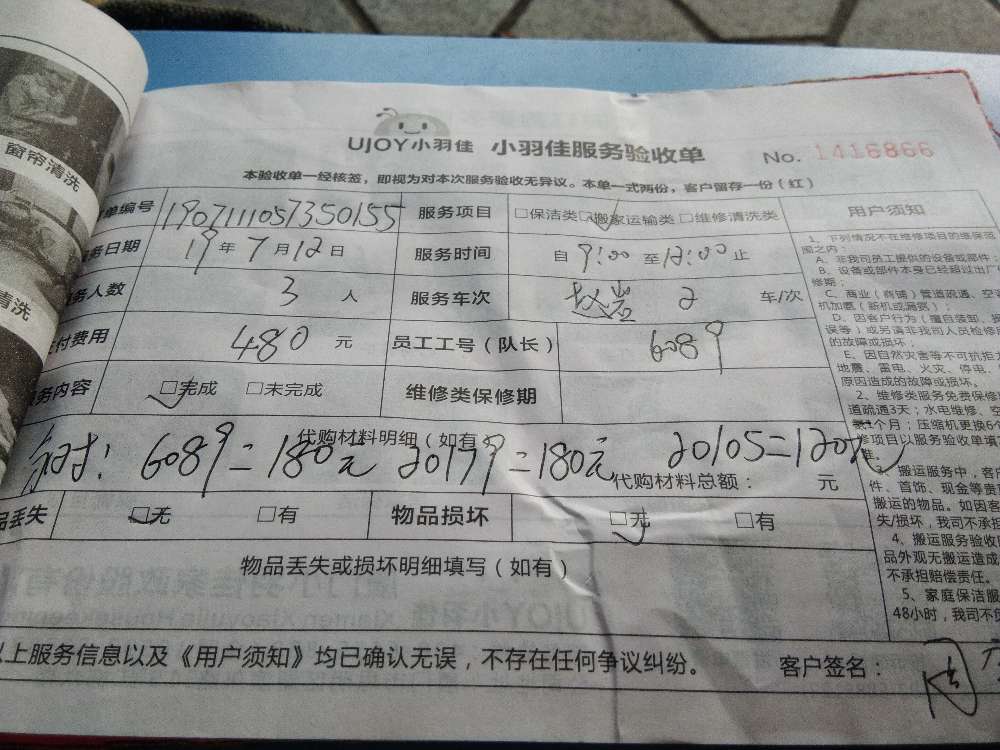 窗帘清洗
清洗
UJOY小羽佳 小羽佳服务验收单 No. 1416866
本验收单一经核签，即视为对本次服务验收无异议。本单一式两份，客户留存一份（红）
单编号 1907111057350155 服务项目 □保洁类 ☑搬家运输类 □维修清洗类 用户须知
务日期 19年7月12日 服务时间 自9:00至12:00止
务人数 3人 服务车次 2 车/次
付费用 480元 员工工号（队长） 6089
务内容 ☑完成 □未完成 维修类保修期
代购材料明细（如有）
6089=180元 20179=180元 20105=120元
代购材料总额： 元
品丢失 ☑无 □有 物品损坏 ☑无 □有
物品丢失或损坏明细填写（如有）
以上服务信息以及《用户须知》均已确认无误，不存在任何争议纠纷。 客户签名：
1、下列情况不在维修项目的维保范
围之内：
A、非我司员工提供的设备或部件；
B、设备或部件本身已经超过出厂
修期；
C、商业（商铺）管道疏通、空
机加氨（新机或漏氨）；
D、因客户行为（擅自装卸、
误等）或另请非我司人员检修
的故障或损坏；
E、因自然灾害等不可抗拒
地震、雷电、火灾、停电、
原因造成的故障或损坏。
2、维修类服务免费保修
道疏通3天；水电维修、空
1个月；压缩机更换6个
修项目以服务验收单填
准。
3、搬运服务中，客户
件、首饰、现金等贵
搬运的物品。如因客
失/损坏，我司不承担
4、搬运服务验收
品外观无搬运造成
不承担赔偿责任。
5、家庭保洁服
48小时，我司不